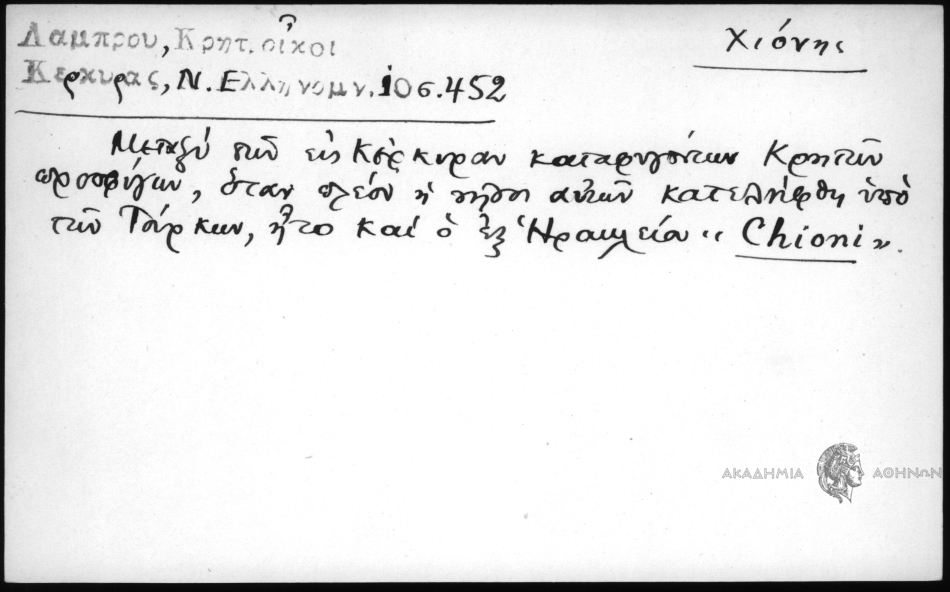 Λαμπρου, Κρητ. οἶκοι
Κερκυρας, Ν. Ελληνομν. 10 σ. 452
Χιόνης
Μεταξύ τῶν εἰς Κέρκυραν καταφυγόντων Κρητῶν
προσφύγων, ὅταν πλέον ἡ νῆσος αὐτῶν κατελήφθη ὑπό
τῶν Τούρκων, ἦτο καί ὁ ἐξ Ἡρακλείου " Chioni ".
ΑΚΑΔΗΜΙΑ ΑΘΗΝΩΝ